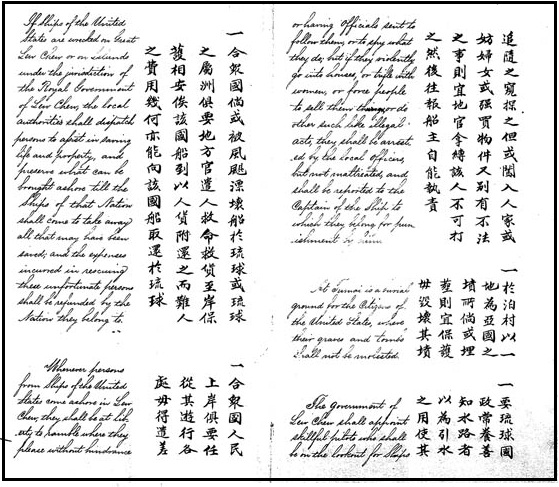 If Ships of the United
States are wrecked on Great
Lew Chew or on Islands
under the jurisdiction of
the Royal Government
of Lew Chew, the local
authorities shall dispatch
persons to assist in saving
life and property, and
preserve what can be
brought ashore till the
Ships of that Nation
shall come to take away
all that may have been
saved; and the expenses
incurred in rescuing
these unfortunate persons
shall be refunded by the
Nation they belong to.
一合衆國倘或被風颶漂壞船於琉球或琉球
之屬洲俱要地方官遣人救命救貨至岸保
護相安俟該國船到以人貨附還之而難人
之費用幾何亦能向該國船取還於琉球
Whenever persons
from Ships of the United
States come ashore in Lew
Chew, they shall be at lib-
erty to ramble where they
please without hindrance
一合衆國人民
上岸俱要任
從其遊行各
處毋得遣差
or having officials sent to
follow them, or to spy what
they do; but if they violently
go into houses, or trifle with
women, or force people
to sell them things, or do
other such like illegal
acts, they shall be arrest-
ed by the local officers,
but not maltreated, and
shall be reported to the
Captain of the Ship to
which they belong for pun
ishment by him
追隨之窺探之但或闖入人家或
妨婦女或强買物件又别有不法
之事則宜地官拿縛該人不可打
之然後往報船主自能執責
At Tumai is a burial
ground for the Citizens of
the United States, where
their graves and tombs
shall not be molested.
一於泊村以一
地為亞國之
墳所倘或埋
塟則宜保護
毋毀壞其墳
The government of
Lew Chew shall appoint
skillful pilots who shall
be on the lookout for Ships
一要琉球國
政常養善
知水路者
以為引水
之用使其